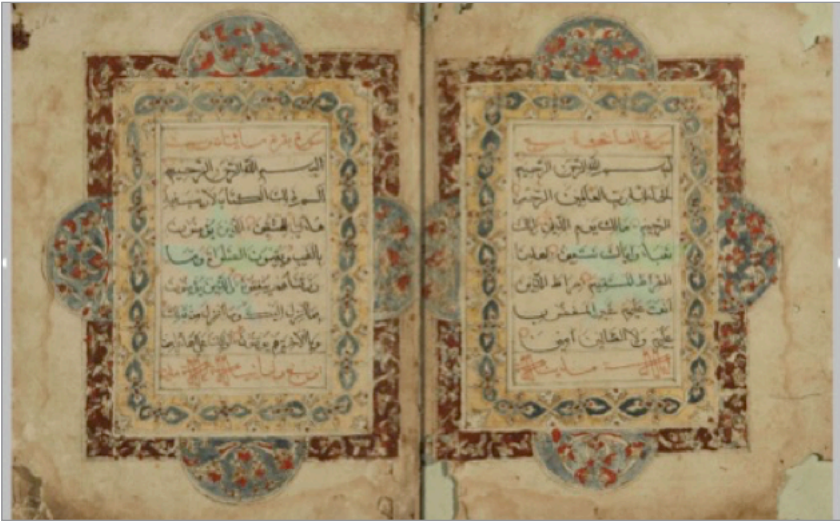 سورة الفاتحة سبع
بسم الله الرحمن الرحيم
الحمد لله رب العالمين الرحمن
الرحيم مالك يوم الدين اياك
نعبد واياك نستعين اهدنا
الصراط المستقيم صراط الذين
انعمت عليهم غير المغضوب
عليهم ولا الضالين امين
سورة بقرة مائتان
بسم الله الرحمن الرحيم
الم ذلك الكتاب لا ريب فيه
هدى للمتقين الذين يؤمنون
بالغيب ويقيمون الصلوة ومما
رزقناهم ينفقون والذين يؤمنون
بما انزل اليك وما انزل من قبلك
وبالاخرة هم يوقنون اولئك على هدى من